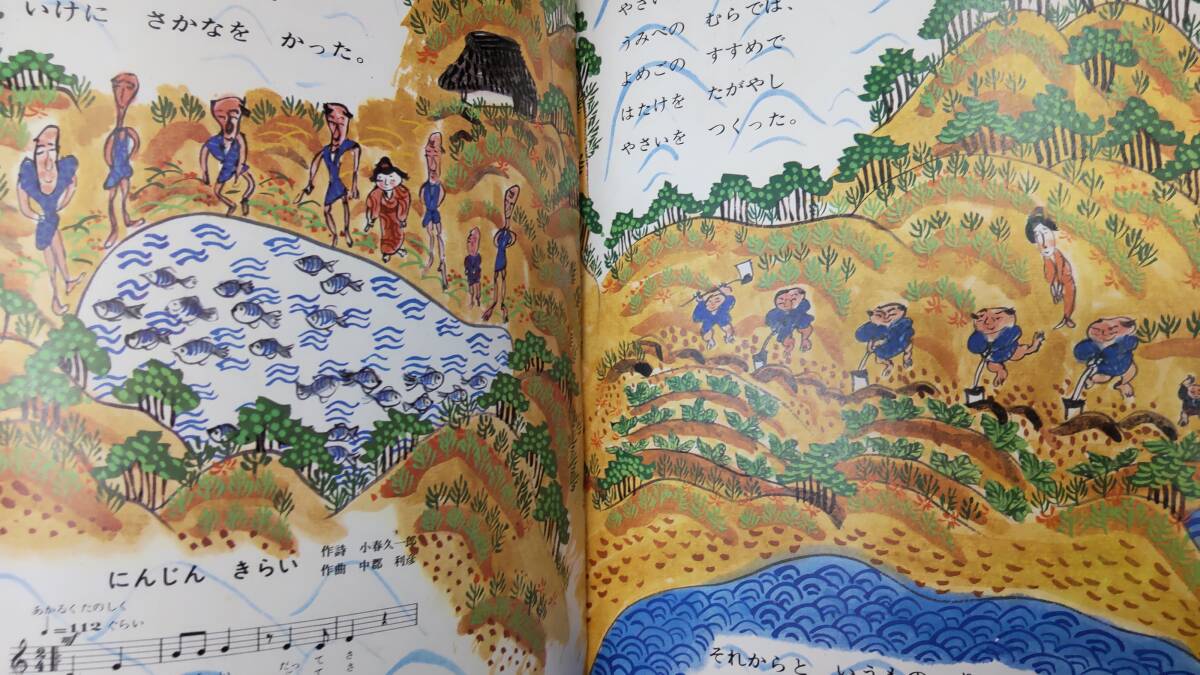 いけに さかなを かった。
やさい
うみべの むらでは、
よめごの すすめで
はたけを たがやし
やさいを つくった。
にんじん きらい
作詩 小春久一郎
作曲 中郡 利彦
あかるくたのしく
♩=112ぐらい
mf
だって ささ
てき
それからと いうもの